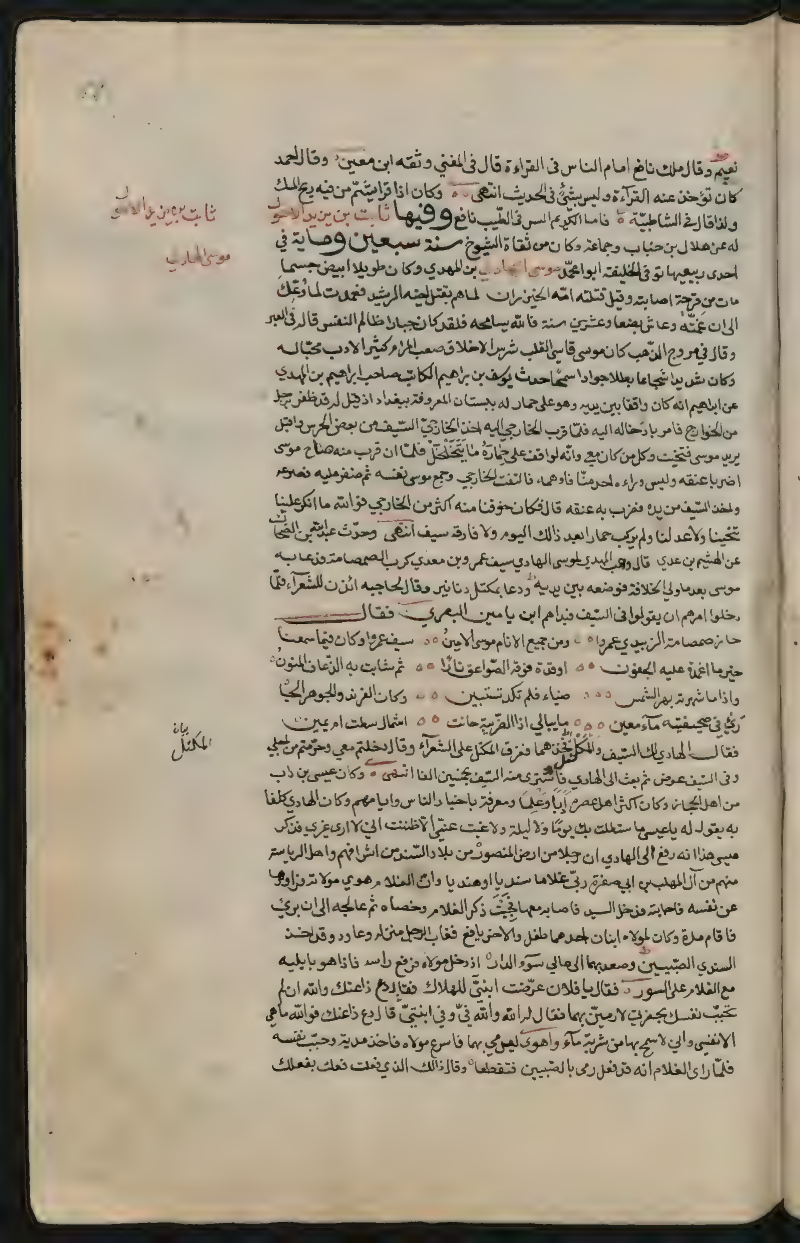 نعيم وقال ملك نافع امام الناس فى القراءة قال فى المغني وثقه ابن معين وقال احمد
كان تؤخذ عنه القرآءة وليس بشئ فى الحديث انتهى وكان اذا قرا يشم من فيه ريح المسك
ولذا قال فى الشاطبية فاما الكريم السر فى الطيب نافع وفيها ثابت بن يزيد الاحول
ثابت بن يزيد الاحول
له عن هلال بن خباب وجماعة وكان من ثقاة الشيوخ سنة سبعين وماية فى
موسى الهادي
احدى ربيعيها توفى الخليفة ابو محمد موسى الهادي بن المهدي وكان طويلا ابيض جسيما
مات من قرحة اصابته وقيل قتلته امه الخيزران لما هم بقتل اخيه الرشيد فعمدت لما وعك
الى ان غمته وعاش بضعا وعشرين سنة فالله يسامحه فلقد كان جبارا ظالم النفس قاله فى العبر
وقال فى مروج الذهب كان موسى قاسي القلب شرس الاخلاق صعب المرام كثير الادب محباله
وكان شديدا شجاعا بطلا جوادا سمحا حدث يوسف بن ابراهيم الكاتب صاحب ابراهيم بن المهدي
عن ابراهيم انه كان واقفا بين يديه وهو على حمار له ببستان المعروفة ببغداد اذ قيل له قد ظفر برجل
من الخوارج فامر بادخاله اليه فلما قرب الخارجي اليه اخذ الخارجي السيف من بعض الحرس واقبل
يريد موسى فتنحيت وكل من كان معي وانه لواقف على حماره ما يتخلخل فلما ان قرب منه صاح موسى
اضربا عنقه وليس وراءه احد منا فاوهمه فالتفت الخارجي وجمع موسى نفسه ثم ظفر عليه فصرعه
واخذ السيف من يده فضرب به عنقه قال فكان خوفنا منه اكثر من الخارجي فوالله ما انكر علينا
تنحينا ولا عذلنا ولم يركب حمارا بعد ذالك اليوم ولا فارقه سيف انتهى وحدث عبد الله بن الضحاك
عن الهيثم بن عدي قال وهب المهدي لموسى الهادي سيف عمرو بن معدي كرب الصمصامة فدعا به
موسى بعد ما ولي الخلافة فوضعه بين يديه ودعا بمكتل دنانير وقال لحاجبه ائذن للشعرآء فلما
دخلوا امرهم ان يقولوا فى السيف فبداهم ابن يامين البصري فقال
حاز صمصامة الزبيدي عمروا من جميع الانام موسى الامين سيف عمرو وكان فيما سمعنا
خير ما اغمدت عليه الجفون اوقدت فوقه الصواعق نارا ثم شابت به الذعاف المنون
واذا ما شهرته بهر الشمس ضياء فلم تكد تستبين وكان الفرند والجوهر الجا
ري فى صحيفتيه مآء معين ما يبالي اذا الضريبة حانت اشمال سطت ام يمين
بيان
المكتل
فقال الهادي لك السيف والمكتل فخذهما ففرق المكتل على الشعرآء وقال دخلتم معي وحرمتم من اجلي
وفى السيف عوض ثم بعث الى الهادي فاشترى منه السيف بخمسين الفا انتهى وكان عيسى بن داب
من اهل الحجاز وكان اكثر اهل عصره ادبا وعلما ومعرفة باخبار الناس وايامهم وكان الهادي كلفا
به يقول له يا عيسى ما استطلت بك يوما ولا ليلة ولا غبت عني الا ظننت اني لا ارى غيري فذكر
عيسى هذا انه رفع الى الهادي ان رجلا من ارض المنصورة من بلاد السند من اشرافهم واهل الرياسة
منهم من آل المهلب بن ابي صفرة ربى غلاما سنديا او هنديا وان الغلام هوي مولاته فراودها
عن نفسه فاجابته فدخل السيد فاصابه معها فجبّ ذكر الغلام وخصاه ثم عالجه الى ان بري
فاقام مدة وكان لمولاه ابنان احدهما طفل والاخر يافع فغاب الرجل عن منزله وعاد وقد اخذ
السندي الصبيين وصعد بهما الى اعالي سور الدار اذ دخل مولاه فرفع راسه فاذا هو بابنيه
مع الغلام على السور فقال يا فلان عرضت ابنيّ للهلاك فقال دع ذا عنك والله ان لم
تجبّ نفسك بحضرتي لارمين بهما فقال له الله والله فيّ وفى ابنيّ قال دع ذا عنك فوالله ما هي
الا نفسي واني لاسمح بها من شربة مآء واهوى ليرمي بهما فاسرع مولاه فاخذ مدية وجبّ نفسه
فلما راى الغلام انه قد فعل رمى بالصبيين فتقطعا وقال ذالك الذي فعلت فعلك بفعلك